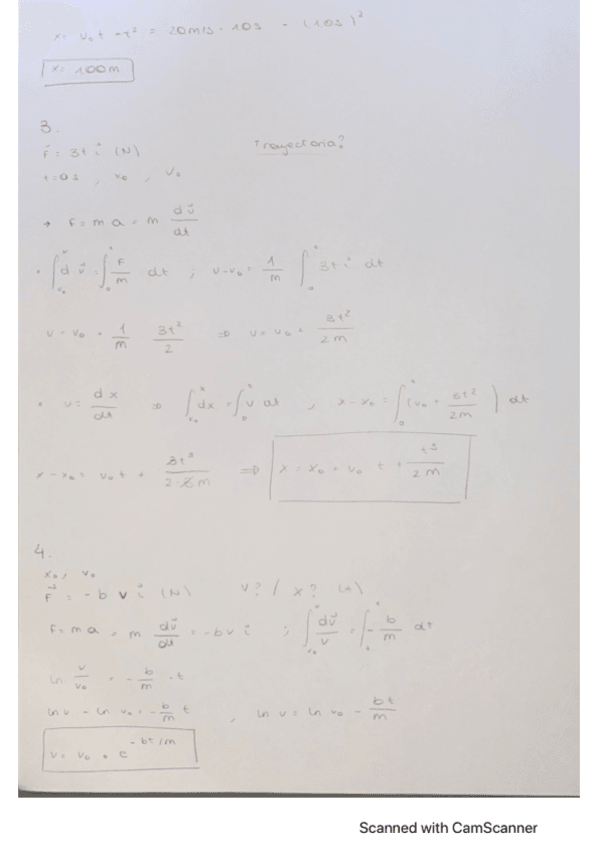 x = v₀t - t² = 20m/s · 10s - (10s)²
x = 100m
3.
F⃗ = 3t i⃗ (N) Trayectoria?
t=0s, x₀, v₀
→ F = m a = m dv⃗/dt
• ∫_{v₀}^{v} dv⃗ = ∫_{0}^{t} F/m dt ; v-v₀ = 1/m ∫_{0}^{t} 3t i dt
v - v₀ = 1/m 3t²/2 ⇒ v = v₀ + 3t²/2m
• v = dx/dt ⇒ ∫_{x₀}^{x} dx = ∫_{0}^{t} v dt , x-x₀ = ∫_{0}^{t} (v₀ + 3t²/2m) dt
x - x₀ = v₀t + 3t³/2·3m ⇒ x = x₀ + v₀ t + t³/2m
4.
x₀, v₀
F⃗ = -b v i⃗ (N) v? / x? (t)
F = m a = m dv⃗/dt = -bv i ; ∫_{v₀}^{v} dv⃗/v = ∫_{0}^{t} - b/m dt
ln v/v₀ = - b/m · t
ln v - ln v₀ = - b/m t , ln v = ln v₀ - bt/m
v = v₀ · e^{-bt/m}
Scanned with CamScanner